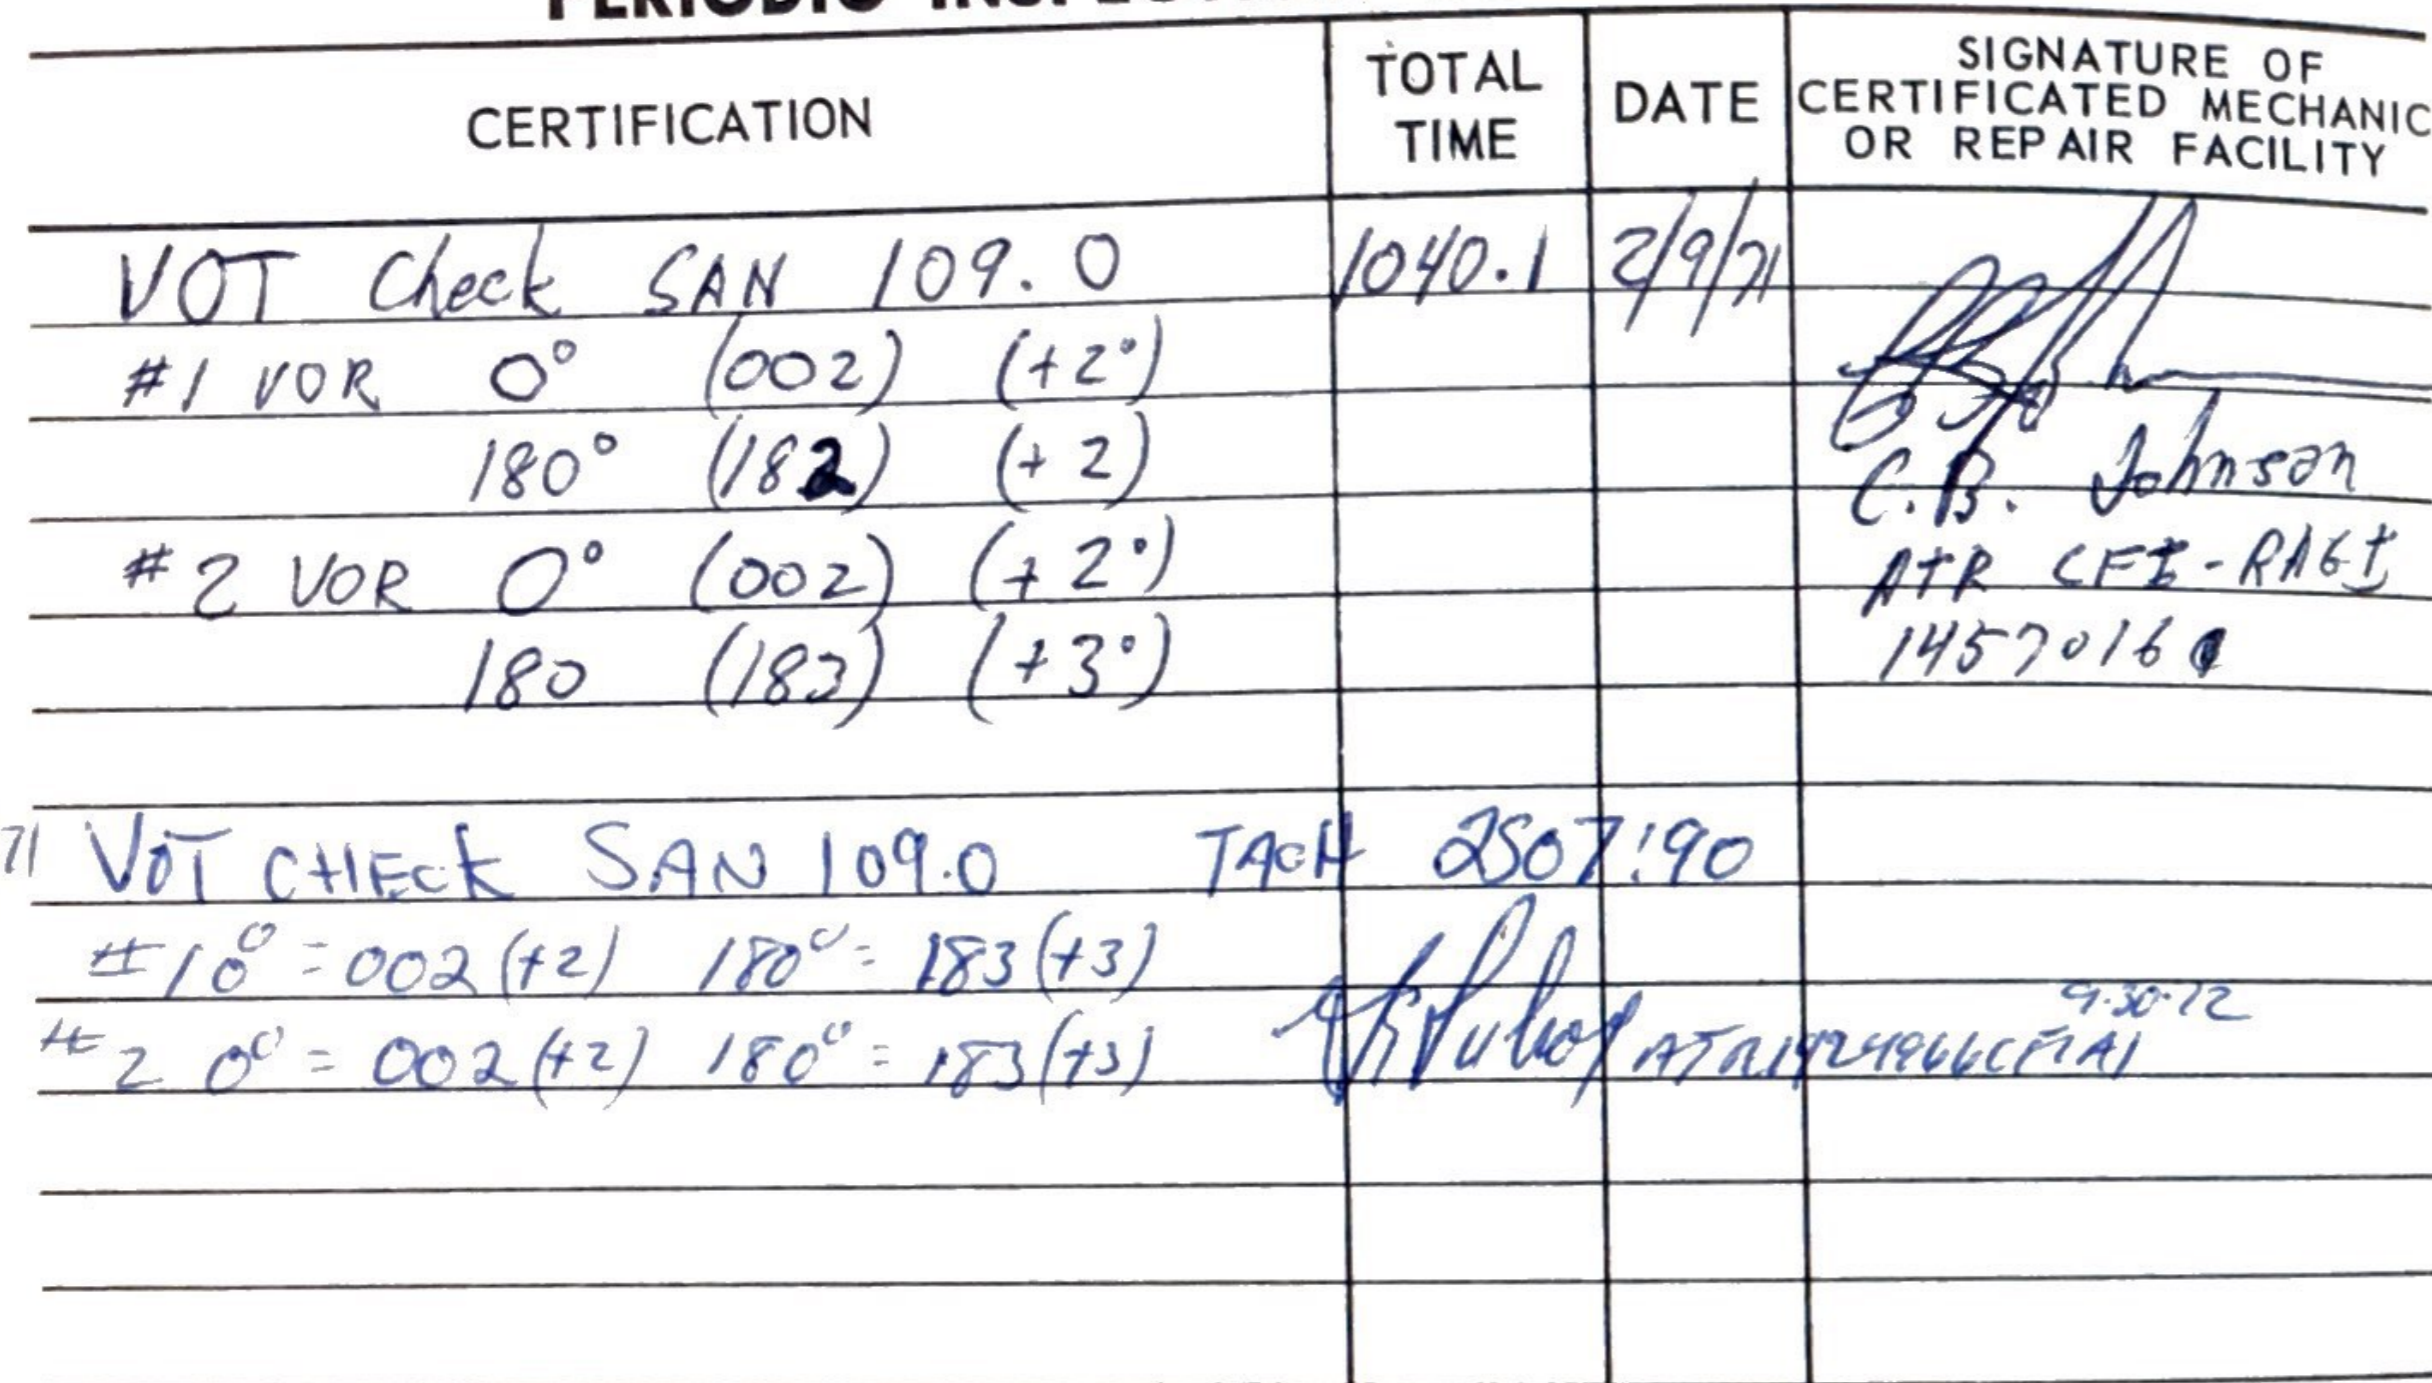 CERTIFICATION
TOTAL TIME
DATE
SIGNATURE OF CERTIFICATED MECHANIC OR REPAIR FACILITY
VOT Check SAN 109.0 1040.1 2/9/71
#1 VOR 0° (002) (+2°)
180° (182) (+2)
C.B. Johnson
#2 VOR 0° (002) (+2°) ATR CFI-RAGI
180 (183) (+3°)1457016
71 VOT CHECK SAN 109.0 TACH 2507.90
#1 0° = 002 (+2) 180° = 183 (+3)
9.30.72
#2 0° = 002 (+2) 180° = 183 (+3)